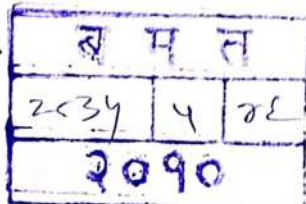 ब म त
२८३५ ५ ४६
२०१०